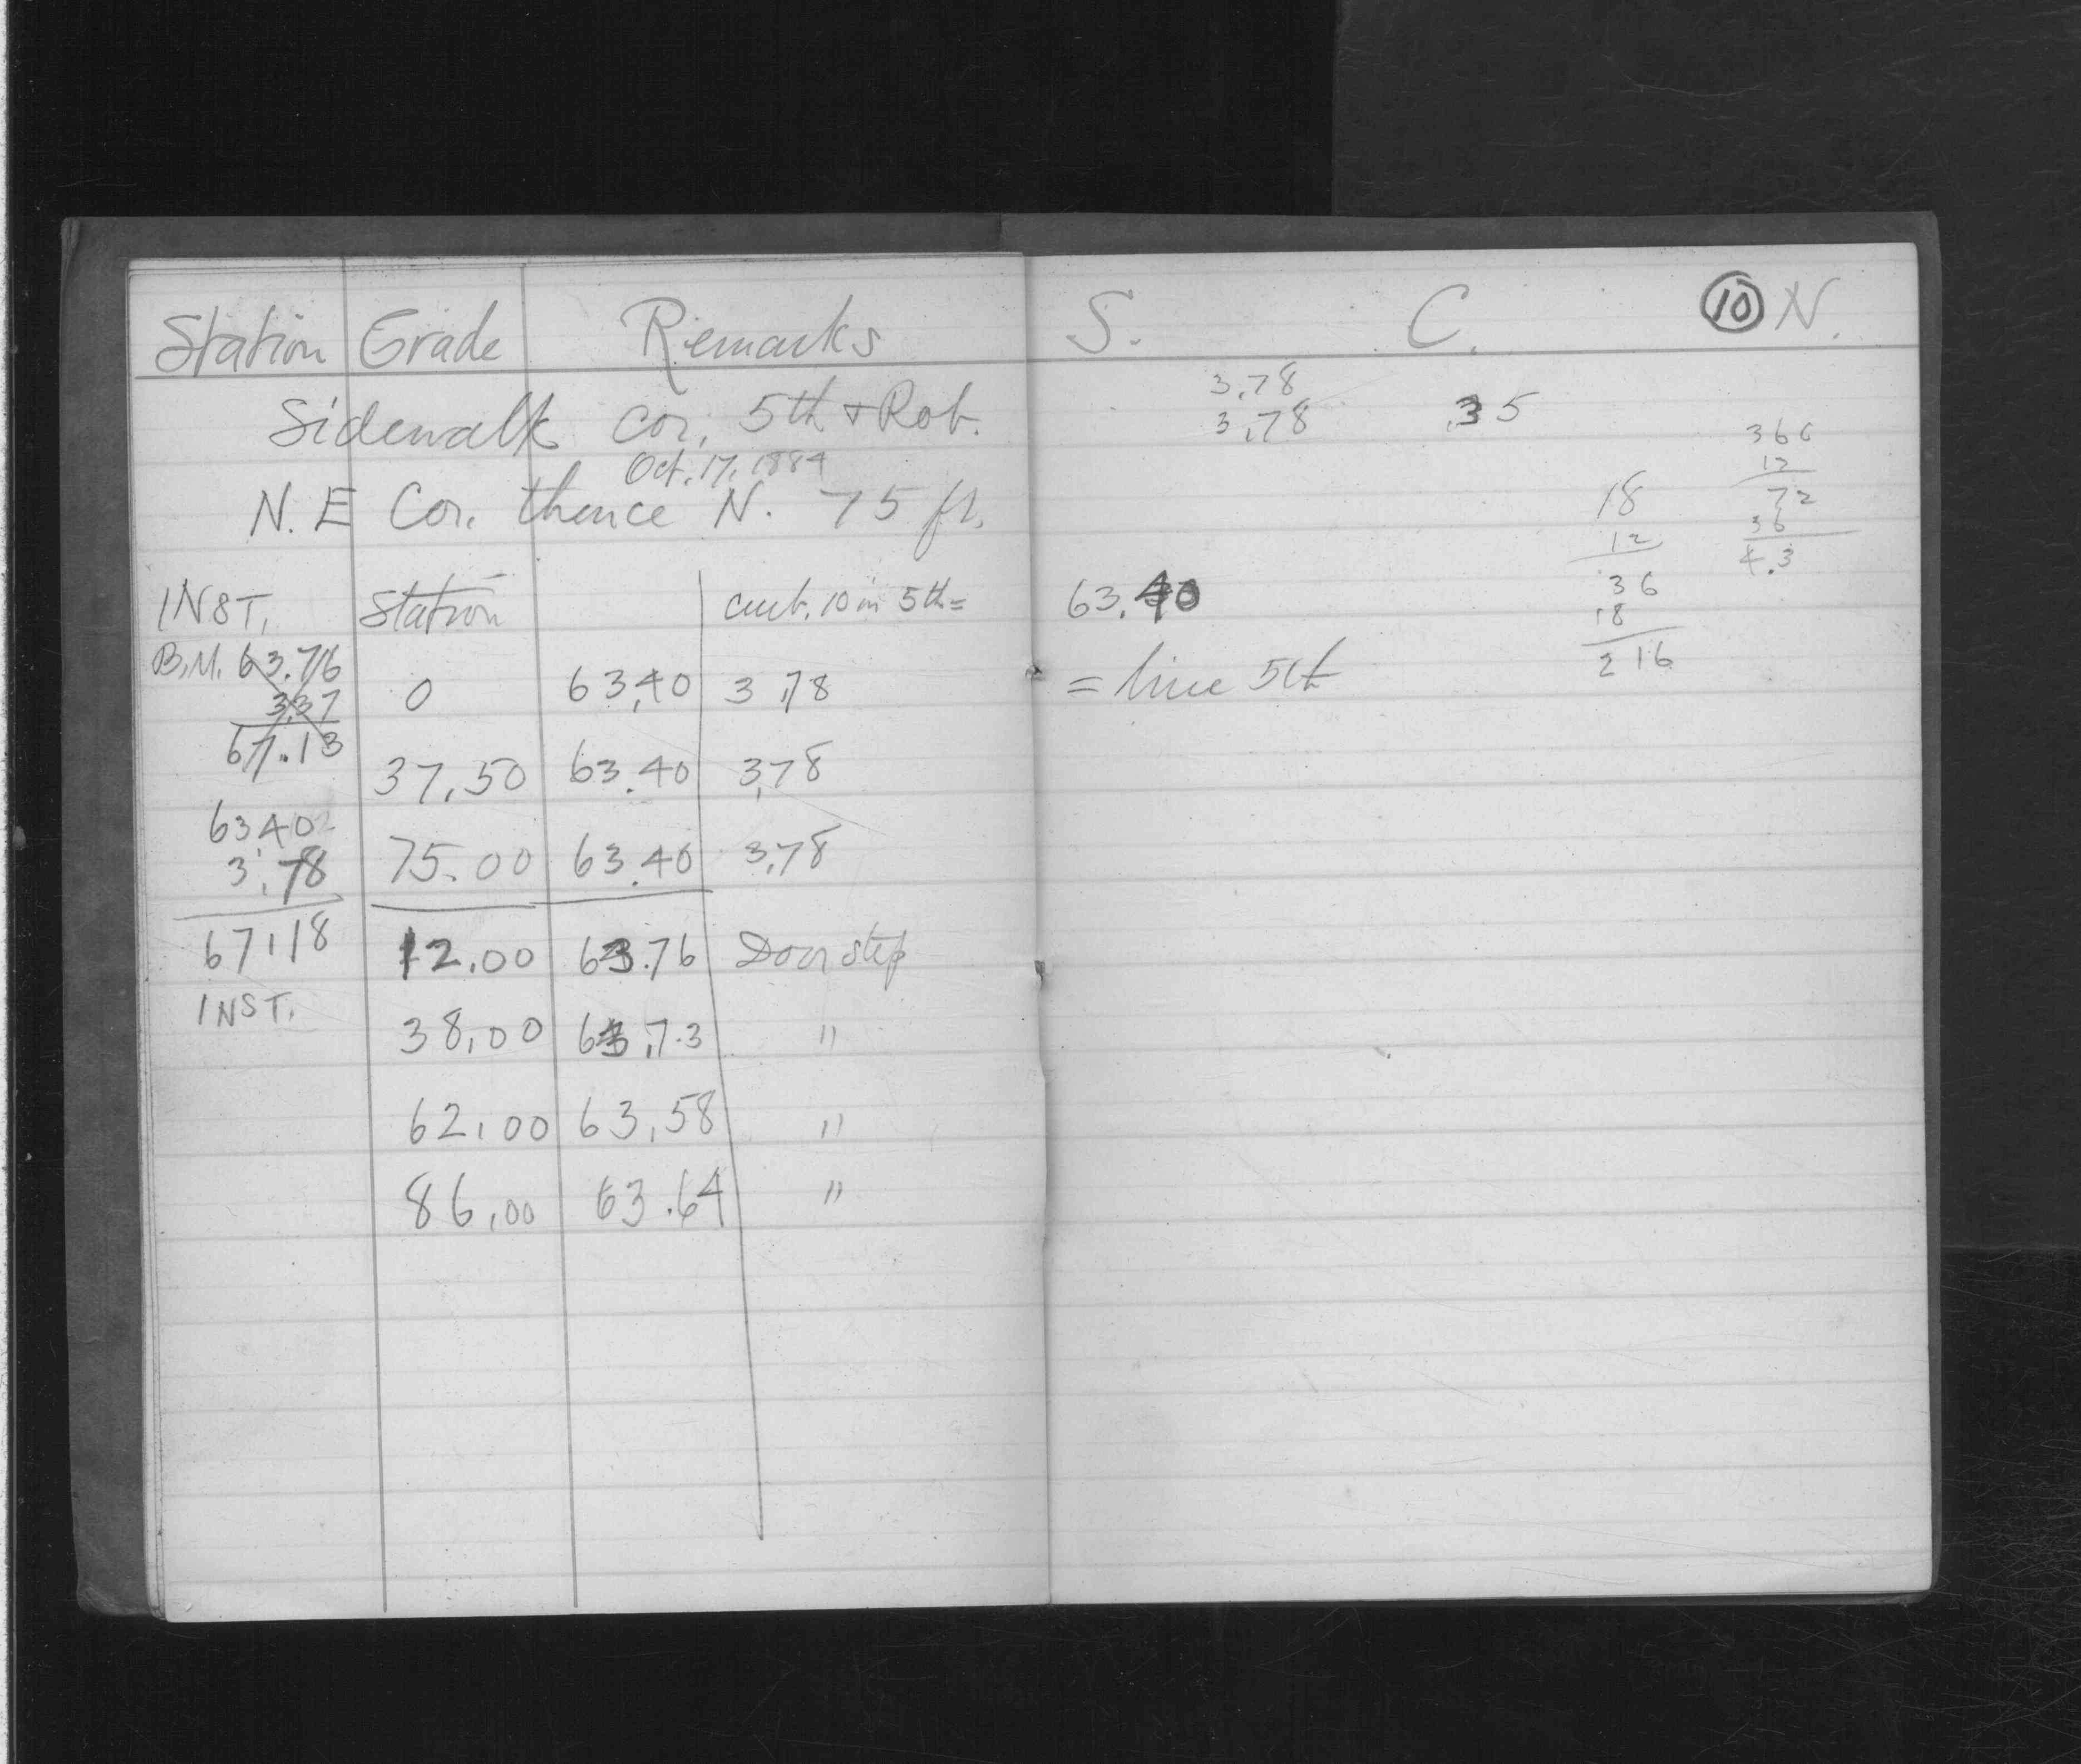 Station Grade Remarks
Sidewalk cor. 5th & Rob.
Oct. 17, 1884
N.E Cor. thence N. 75 ft.
INST. Station curb. 10 in 5th =
B.M. 63.76
3.37
67.13
0 63.40 3.78
37.50 63.40 3.78
63.40
3.78
75.00 63.40 3.78
67.18
INST.
12.00 63.76 Door step
38.00 63.73 "
62.00 63.58 "
86.00 63.64 "
S. C. 10 N.
3.78
3.78 .35
366
12
72
36
4.3
18
12
36
18
216
63.40
= line 5th